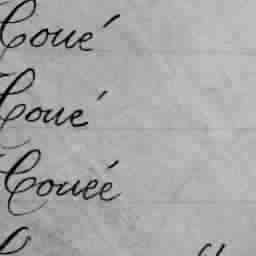 Coué
Coué
Couée